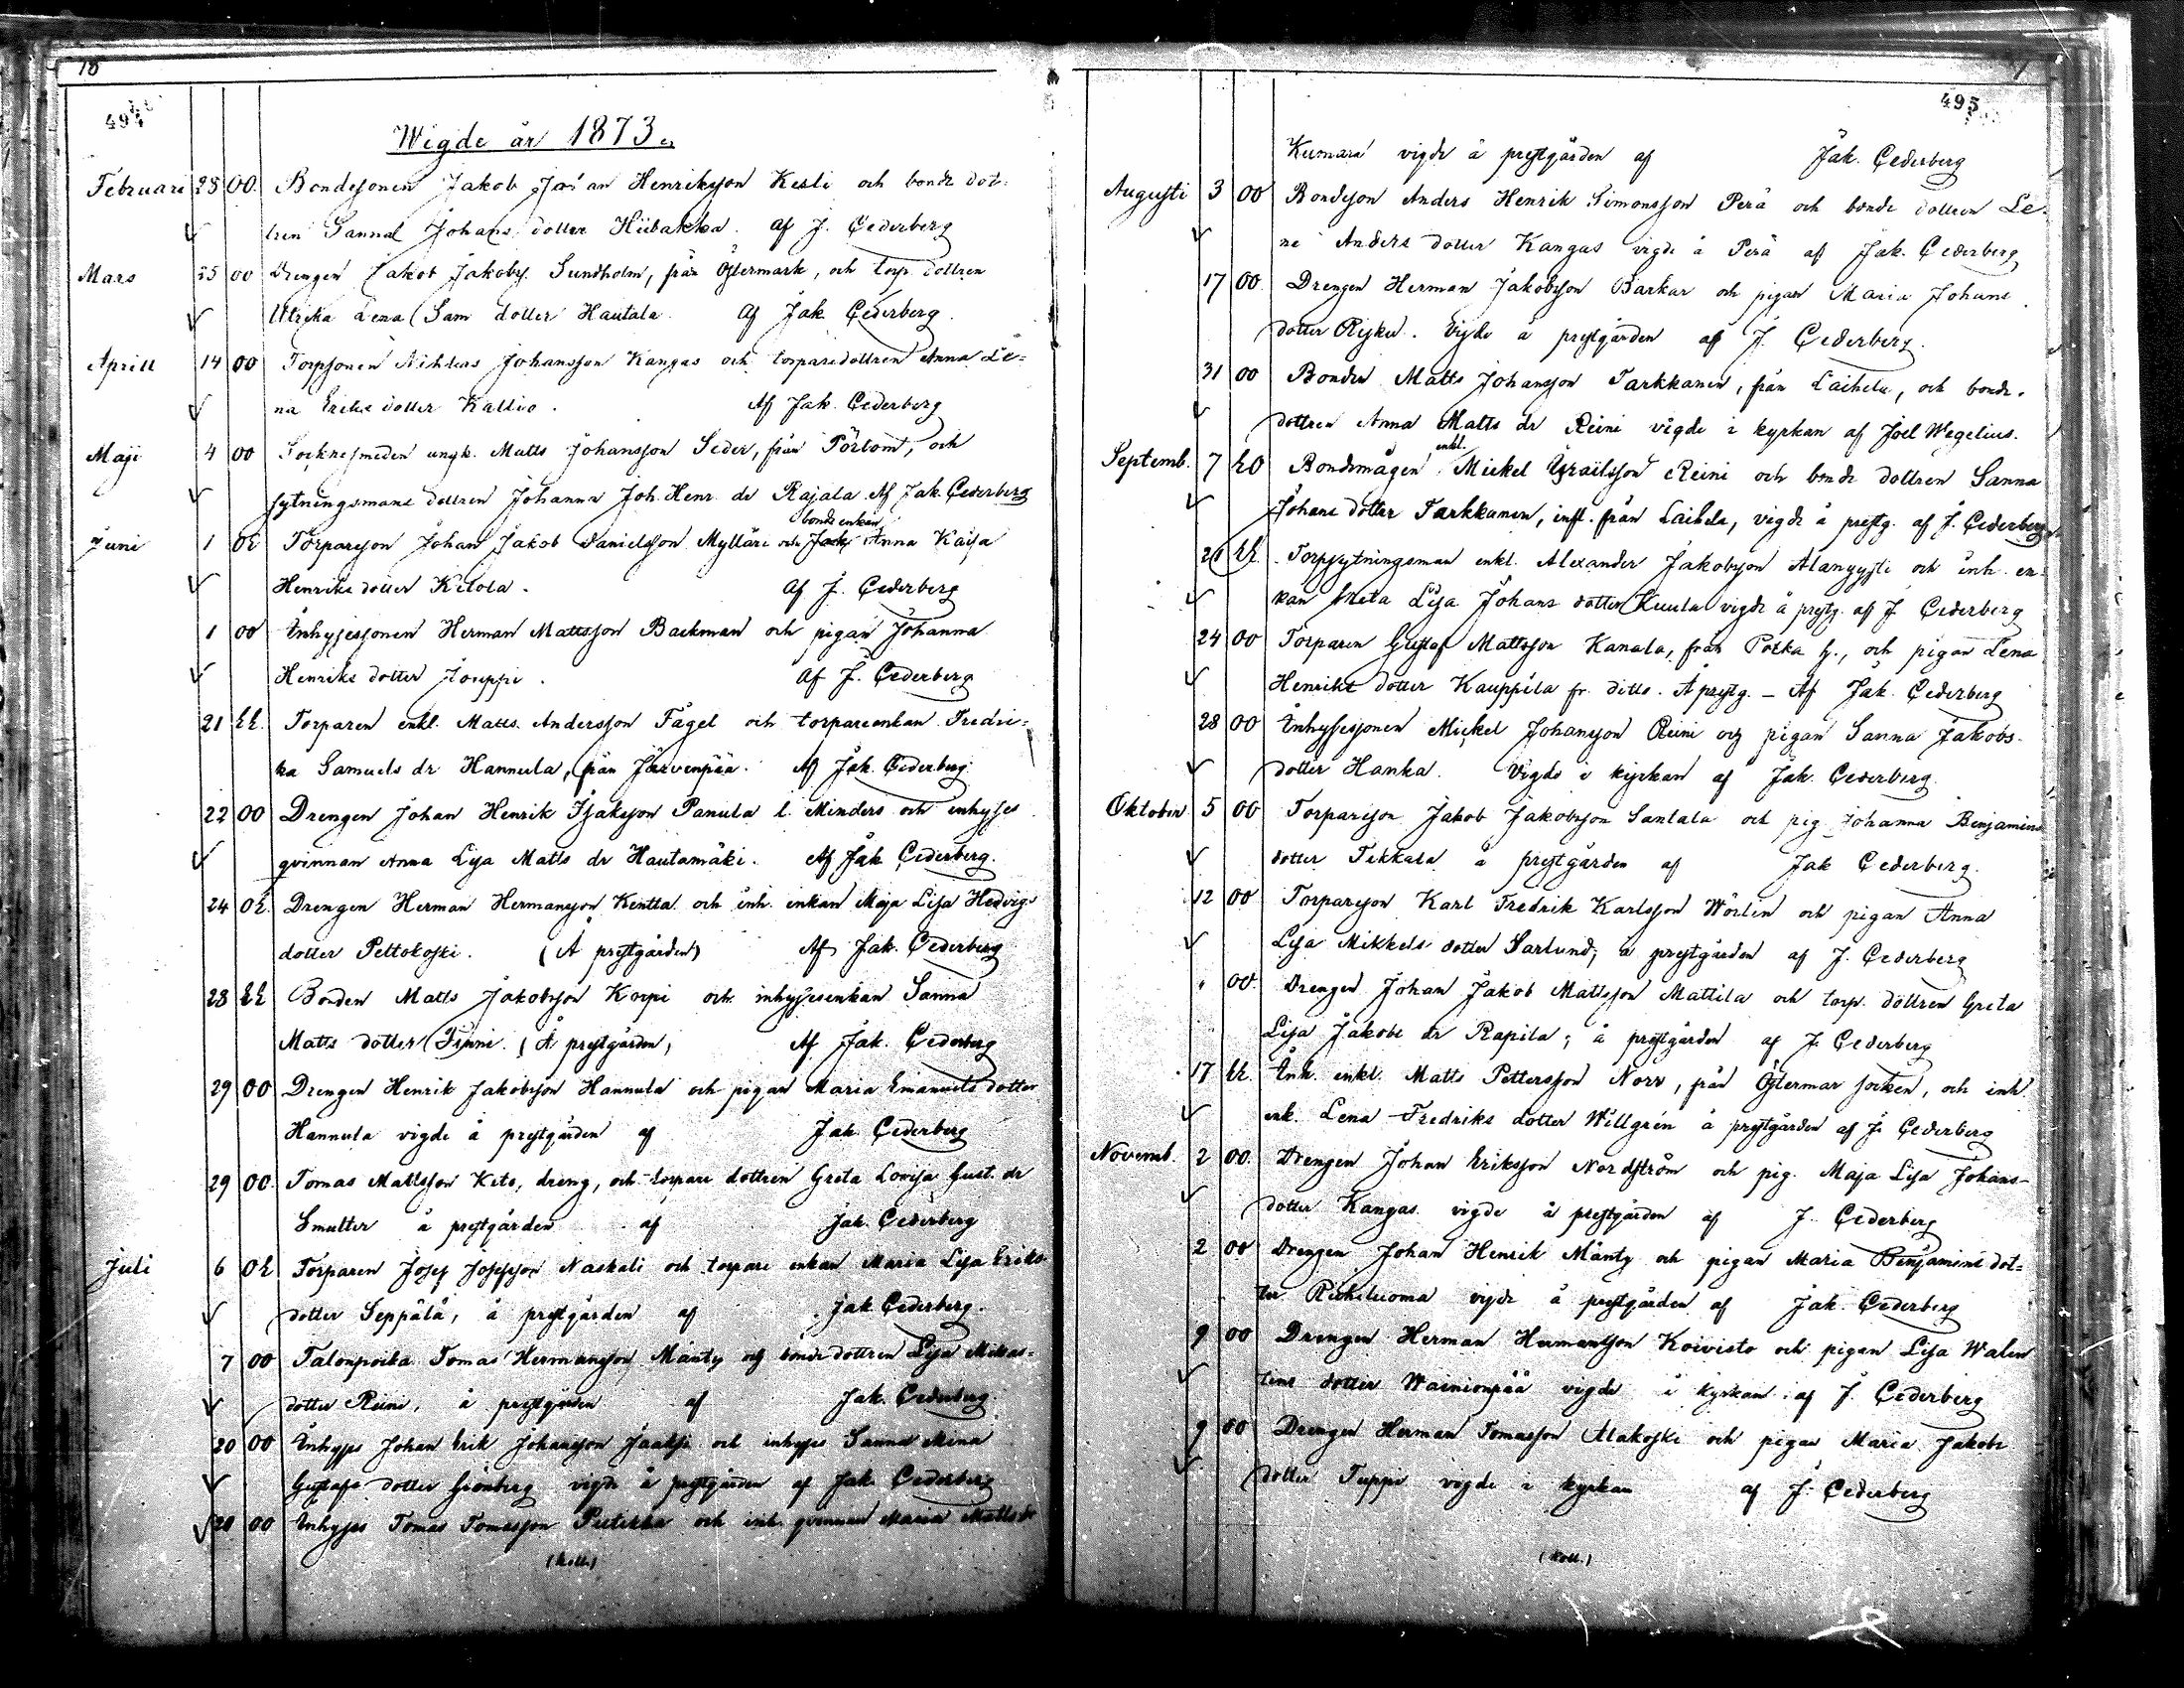 18
494
Wigde år 1873.
Februari 23 OO. Bondesonen Jakob Johan Henriksson Kesti och bonde dot-
tren Sanna Johans dotter Hiibakka. Af J. Cederberg
Mars 25 OO Drengen Jakob Jakobss. Sundholm, från Östermark, och torp. dottren
Ulrika Lena Sam dotter Hautala. Af Jak. Cederberg.
Aprill 14 OO Torpsonen Nihlas Johansson Kangas och torparedottren Anna Le-
na Eriks dotter Kallio. Af Jak. Cederberg
Maji 4 OO Socknesmeden ungk. Matts Johansson Seder, från Pörtom, och
sytningsmans dottren Johanna Joh. Henr. dr Rajala. Af Jak. Cederberg
bonde enkan
Juni 1 OE Torpareson Johan Jakob Danielsson Mylläri och Anna Kaisa
Henriks dotter Kitola. Af J. Cederberg
1 OO Inhysessonen Herman Mattsson Backman och pigan Johanna
Henriks dotter Jouppi. Af J. Cederberg
21 EE. Torparen enkl. Matts Andersson Fågel och torpareenkan Fredri-
ka Samuels dr Hannula, från Järvenpää. Af Jak. Cederberg.
22 OO Drengen Johan Henrik Isaksson Panula l. Minders och inhyses
qvinnan Anna Lisa Matts dr Hautamäki. Af Jak Cederberg.
24 OE. Drengen Herman Hermansson Kentta och inh. enkan Maja Lisa Hedvigs
dotter Peltokoski. (Å prestgården) Af Jak. Cederberg
28 EE Bonden Matts Jakobsson Korpi och inhysesenkan Sanna
Matts dotter Finni. (Å prestgården) Af Jak. Cederberg
29 OO Drengen Henrik Jakobsson Hannula och pigan Maria Emanuels dotter
Hannula vigde å prestgården af Jak Cederberg
29 OO. Tomas Mattsson Keto, dreng, och torpare dottren Greta Lovisa Gust. dr
Smulter å prestgården af Jak. Cederberg
Juli 6 OE Torparen Josef Josefsson Naskali och torpare enkan Maria Lisa Eriks
dotter Seppälä, å prestgården af Jak Cederberg.
7 OO Talonpoika Tomas Hermansson Mänty och bonde dottren Lisa Mikas-
dotter Reini, å prestgården af Jak. Cederberg.
20 OO Inhyses Johan Erik Johansson Jaatsi och inhyses Sanna Mina
Gustafs dotter Grönberg vigde å prestgården af Jak. Cederberg
20 OO Inhyses Tomas Tomasson Puttekka och inh. qvinnan Maria Matts dr
(koll.)
495
Kumara vigde å prestgården af Jak. Cederberg
Augusti 3 OO Bondeson Anders Henrik Simonsson Perä och bonde dottren Le-
na Anders dotter Kangas vigde å Perä af Jak. Cederberg
17 OO. Drengen Herman Jakobsson Barkar och pigan Maria Johans
dotter Rysku. Vigde å prestgården af J. Cederberg.
31 OO Bonden Matts Johansson Tarkkanen, från Laihela, och bonde-
dottren Anna Matts dr Reini vigde i kyrkan af Joel Wegelius.
enkl.
Septemb. 7 EO Bondemågen Mickel Israilsson Reini och bonde dottren Sanna
Johans dotter Tarkkanen, infl. från Laihela, vigde å prestg. af J. Cederberg
21 EE. Torpsytningsman enkl. Alexander Jakobsson Alangysti och inh. en-
kan Greta Lisa Johans dotter Kuula vigde å prestg. af J. Cederberg
24 OO Torparen Gustaf Mattsson Kanala, från Pokka by., och pigan Lena
Henriks dotter Kauppila fr. ditto. Å prestg. - Af Jak. Cederberg
28 OO Inhysessonen Mickel Johansson Reini och pigan Sanna Jakobs-
dotter Hanka. Vigde i kyrkan af Jak. Cederberg.
Oktober 5 OO Torpareson Jakob Jakobsson Santala och pig. Johanna Benjamins
dotter Tikkala å prestgården af Jak Cederberg.
12 OO Torpareson Karl Fredrik Karlsson Worlin och pigan Anna
Lisa Mikkels dotter Sarlund, å prestgården af J. Cederberg
" OO. Drengen Johan Jakob Mattsson Mattila och torp. dottren Greta
Lisa Jakobs dr Rapila; å prestgården af J. Cederberg
17 EE. Inh. enkl. Matts Pettersson Norr, från Östermar socken, och inh
enk. Lena Fredriks dotter Willgrén å prestgården af J. Cederberg
Novemb. 2 OO. Drengen Johan Eriksson Nordström och pig. Maja Lisa Johans-
dotter Kangas vigde å prestgården af J. Cederberg
2 OO Drengen Johan Henrik Mänty och pigan Maria Benjamins dot-
ter Rickiluoma vigde å prestgården af Jak. Cederberg
9 OO Drengen Herman Hermansson Koivisto och pigan Lisa Walen
tins dotter Wainionpää vigde i kyrkan af J. Cederberg
9 OO Drengen Herman Tomasson Alakoski och pigan Maria Jakobs
dotter Tuppi vigde i kyrkan af J. Cederberg
(koll.)